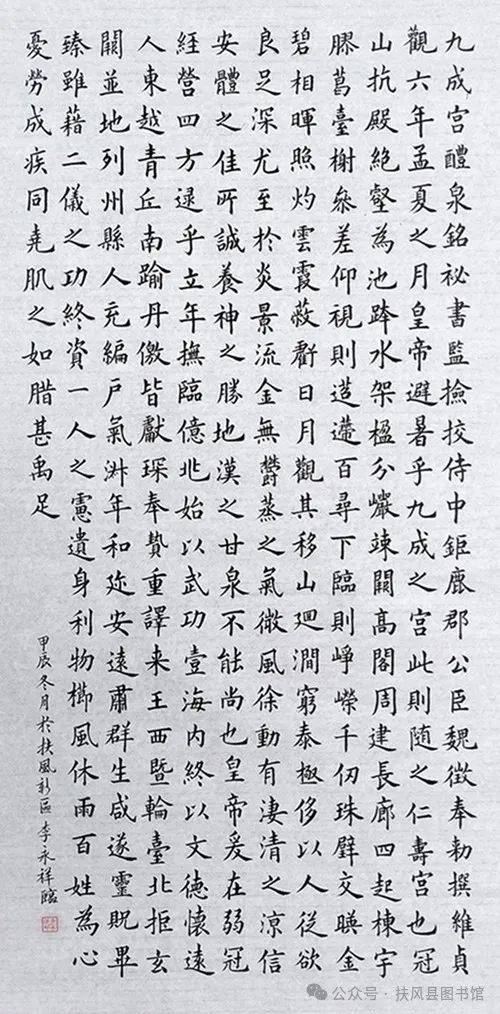 九成宮醴泉銘祕書監撿挍侍中鉅鹿郡公臣魏徵奉勑撰維貞
觀六年孟夏之月皇帝避暑乎九成之宮此則随之仁壽宮也冠
山抗殿絕壑為池跨水架楹分巗竦闕高閣周建長廊四起棟宇
膠葛臺榭叅差仰視則迢遰百尋下臨則崢嶸千仞珠璧交暎金
碧相暉照灼雲霞蔽虧日月觀其移山廻澗窮泰極侈以人從欲
良足深尤至於炎景流金無鬱蒸之氣微風徐動有淒清之涼信
安體之佳所誠養神之勝地漢之甘泉不能尚也皇帝爰在弱冠
經營四方逯乎立年撫臨億兆始以武功壹海内終以文德懷遠
人東越青丘南踰丹儌皆獻琛奉贄重譯来王西暨輪臺北拒玄
闕並地列州縣人充編戶氣淑年和迩安遠肅群生咸遂靈貺畢
臻雖藉二儀之功終資一人之慮遺身利物櫛風沐雨百姓為心
憂勞成疾同堯肌之如腊甚禹足
甲辰冬月於扶風新區李永祥臨
公众号·扶风县图书馆